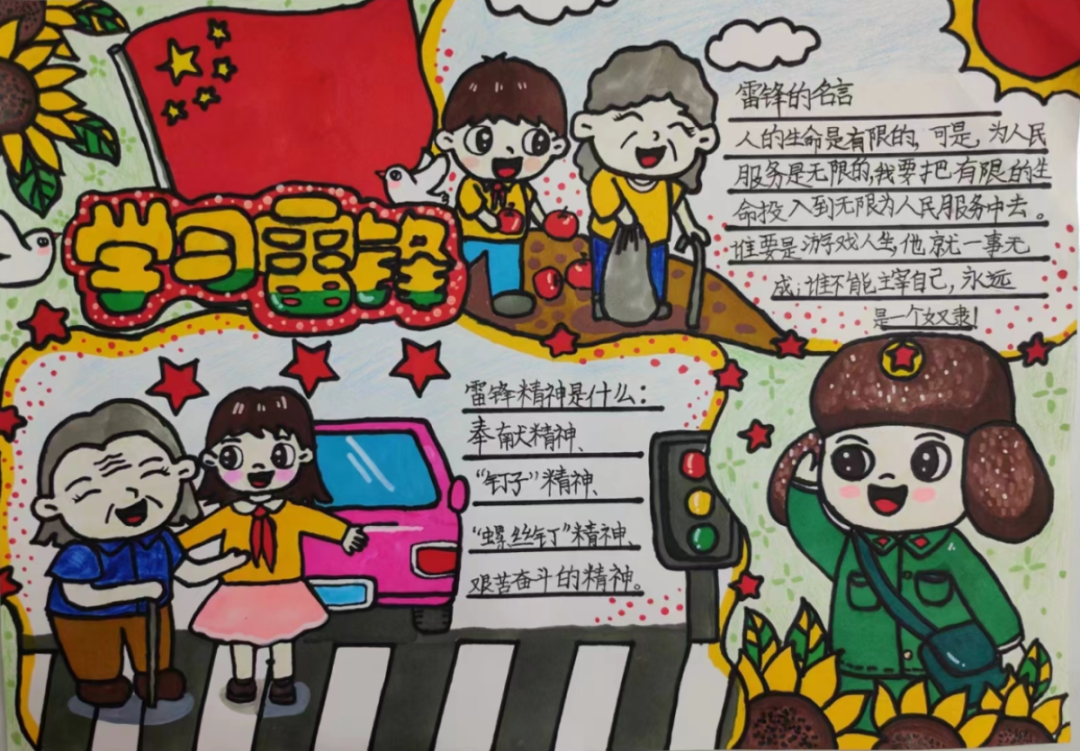 学习雷锋
雷锋的名言
人的生命是有限的,可是,为人民
服务是无限的,我要把有限的生
命投入到无限为人民服务中去。
谁要是游戏人生,他就一事无
成;谁不能主宰自己,永远
是一个奴隶!
雷锋精神是什么:
奉献精神、
“钉子”精神、
“螺丝钉”精神、
艰苦奋斗的精神。